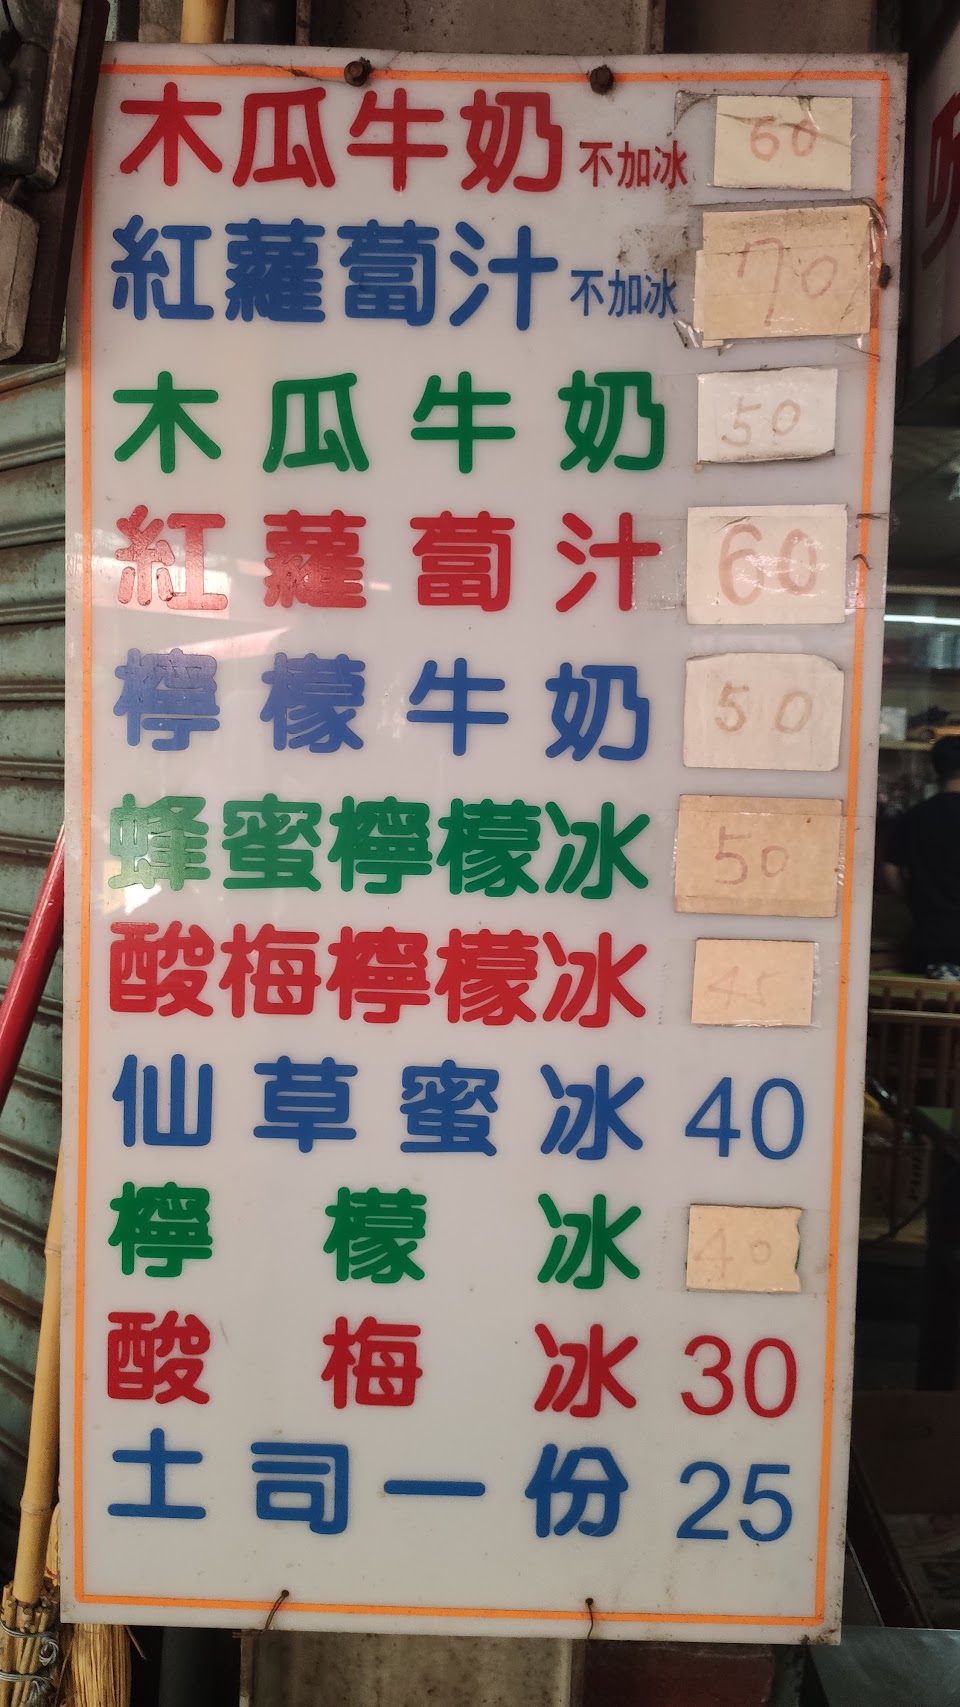 木瓜牛奶 不加冰 60
紅蘿蔔汁 不加冰 70
木瓜牛奶 50
紅蘿蔔汁 60
檸檬牛奶 50
蜂蜜檸檬冰 50
酸梅檸檬冰 45
仙草蜜冰 40
檸檬冰 40
酸梅冰 30
土司一份 25